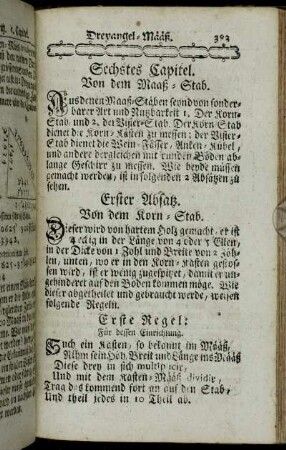 Dreyangel-Määß. 303
Sechstes Capitel.
Von dem Maaß-Stab.
Aus denen Maaß-Stäben seynd von sonder-
barer Art und Nutzbarkeit 1. Der Korn-
Stab und 2. der Visier-Stab. Der Korn-Stab
dienet die Korn-Kästen zu messen: der Visier-
Stab dienet die Wein-Fässer, Anken-Kübel,
und andere dergleichen mit runden Böden ab-
lange Geschirr zu messen. Wie beyde müssen
gemacht werden, ist in folgenden 2 Absätzen zu
sehen.
Erster Absatz.
Von dem Korn-Stab.
Dieser wird von hartem Holz gemacht, er ist
4 eckig in der Länge von 4 oder 5 Ellen,
in der Dicke von 1 Zohl und Breite von 2 Zöh-
len, unten, wo er in den Korn-Kasten gestos-
sen wird, ist er wenig zugespitzt, damit er un-
gehindert auf den Boden kommen möge. Wie
dieser abgetheilet und gebraucht werde, weisen
folgende Regeln.
Erste Regel:
Für dessen Einrichtung.
Such ein Kasten, so bekannt im Määß,
Nihm sein Höh, Breit und Länge ins Määß
Diese drey in sich multiplicir,
Und mit dem Kasten-Määß dividir,
Trag das kommend fort an auf den Stab,
Und theil jedes in 10 Theil ab.